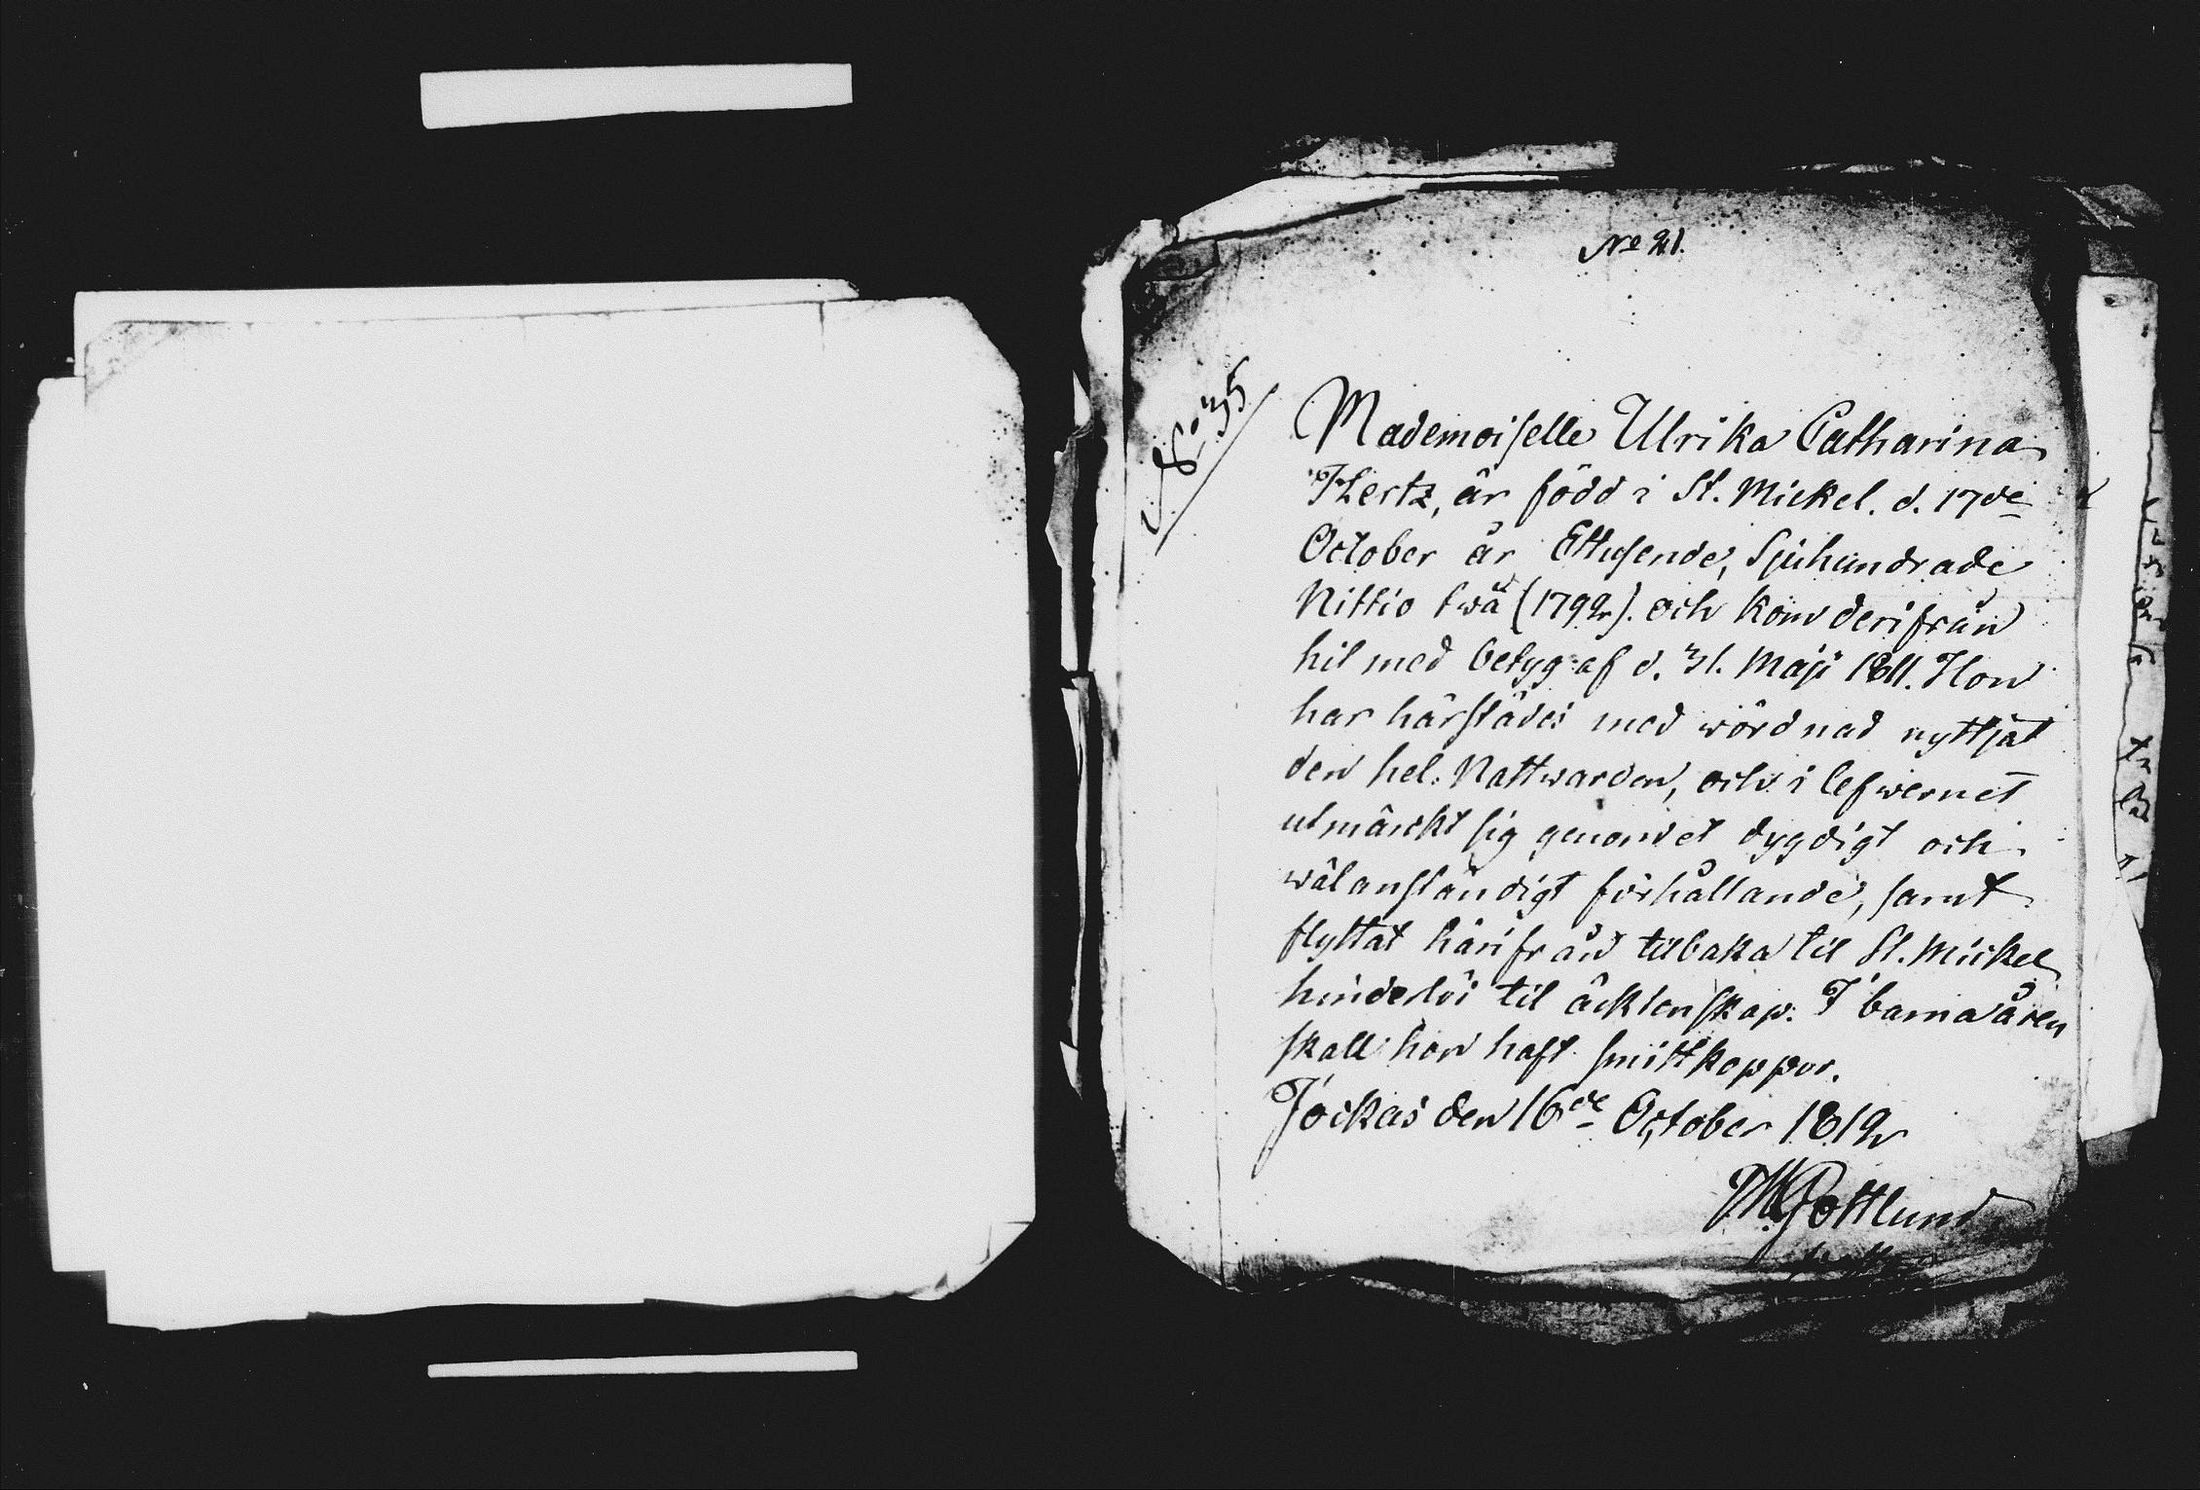 No 21.
Mademoiselle Ulrika Catharina
Hertz, är född i St. Mickel. d. 17de
October år Ettusende, Sjuhundrade
Nittio twå (1792). och kom derifrån
hit med betyg af d. 31. Maji 1811. Hon
har härstädes med wördnad nyttjat
den hel. Nattwarden, och i lefwernet
utmärkt sig genom et dygdigt och
wälanständigt förhållande, samt
flyttat härifrån tilbaka til St. Mickel
hinderlös til äcktenskap. I barnaåren
skall hon haft smittkoppor.
Jockas den 16de October 1819
M. Gottlund